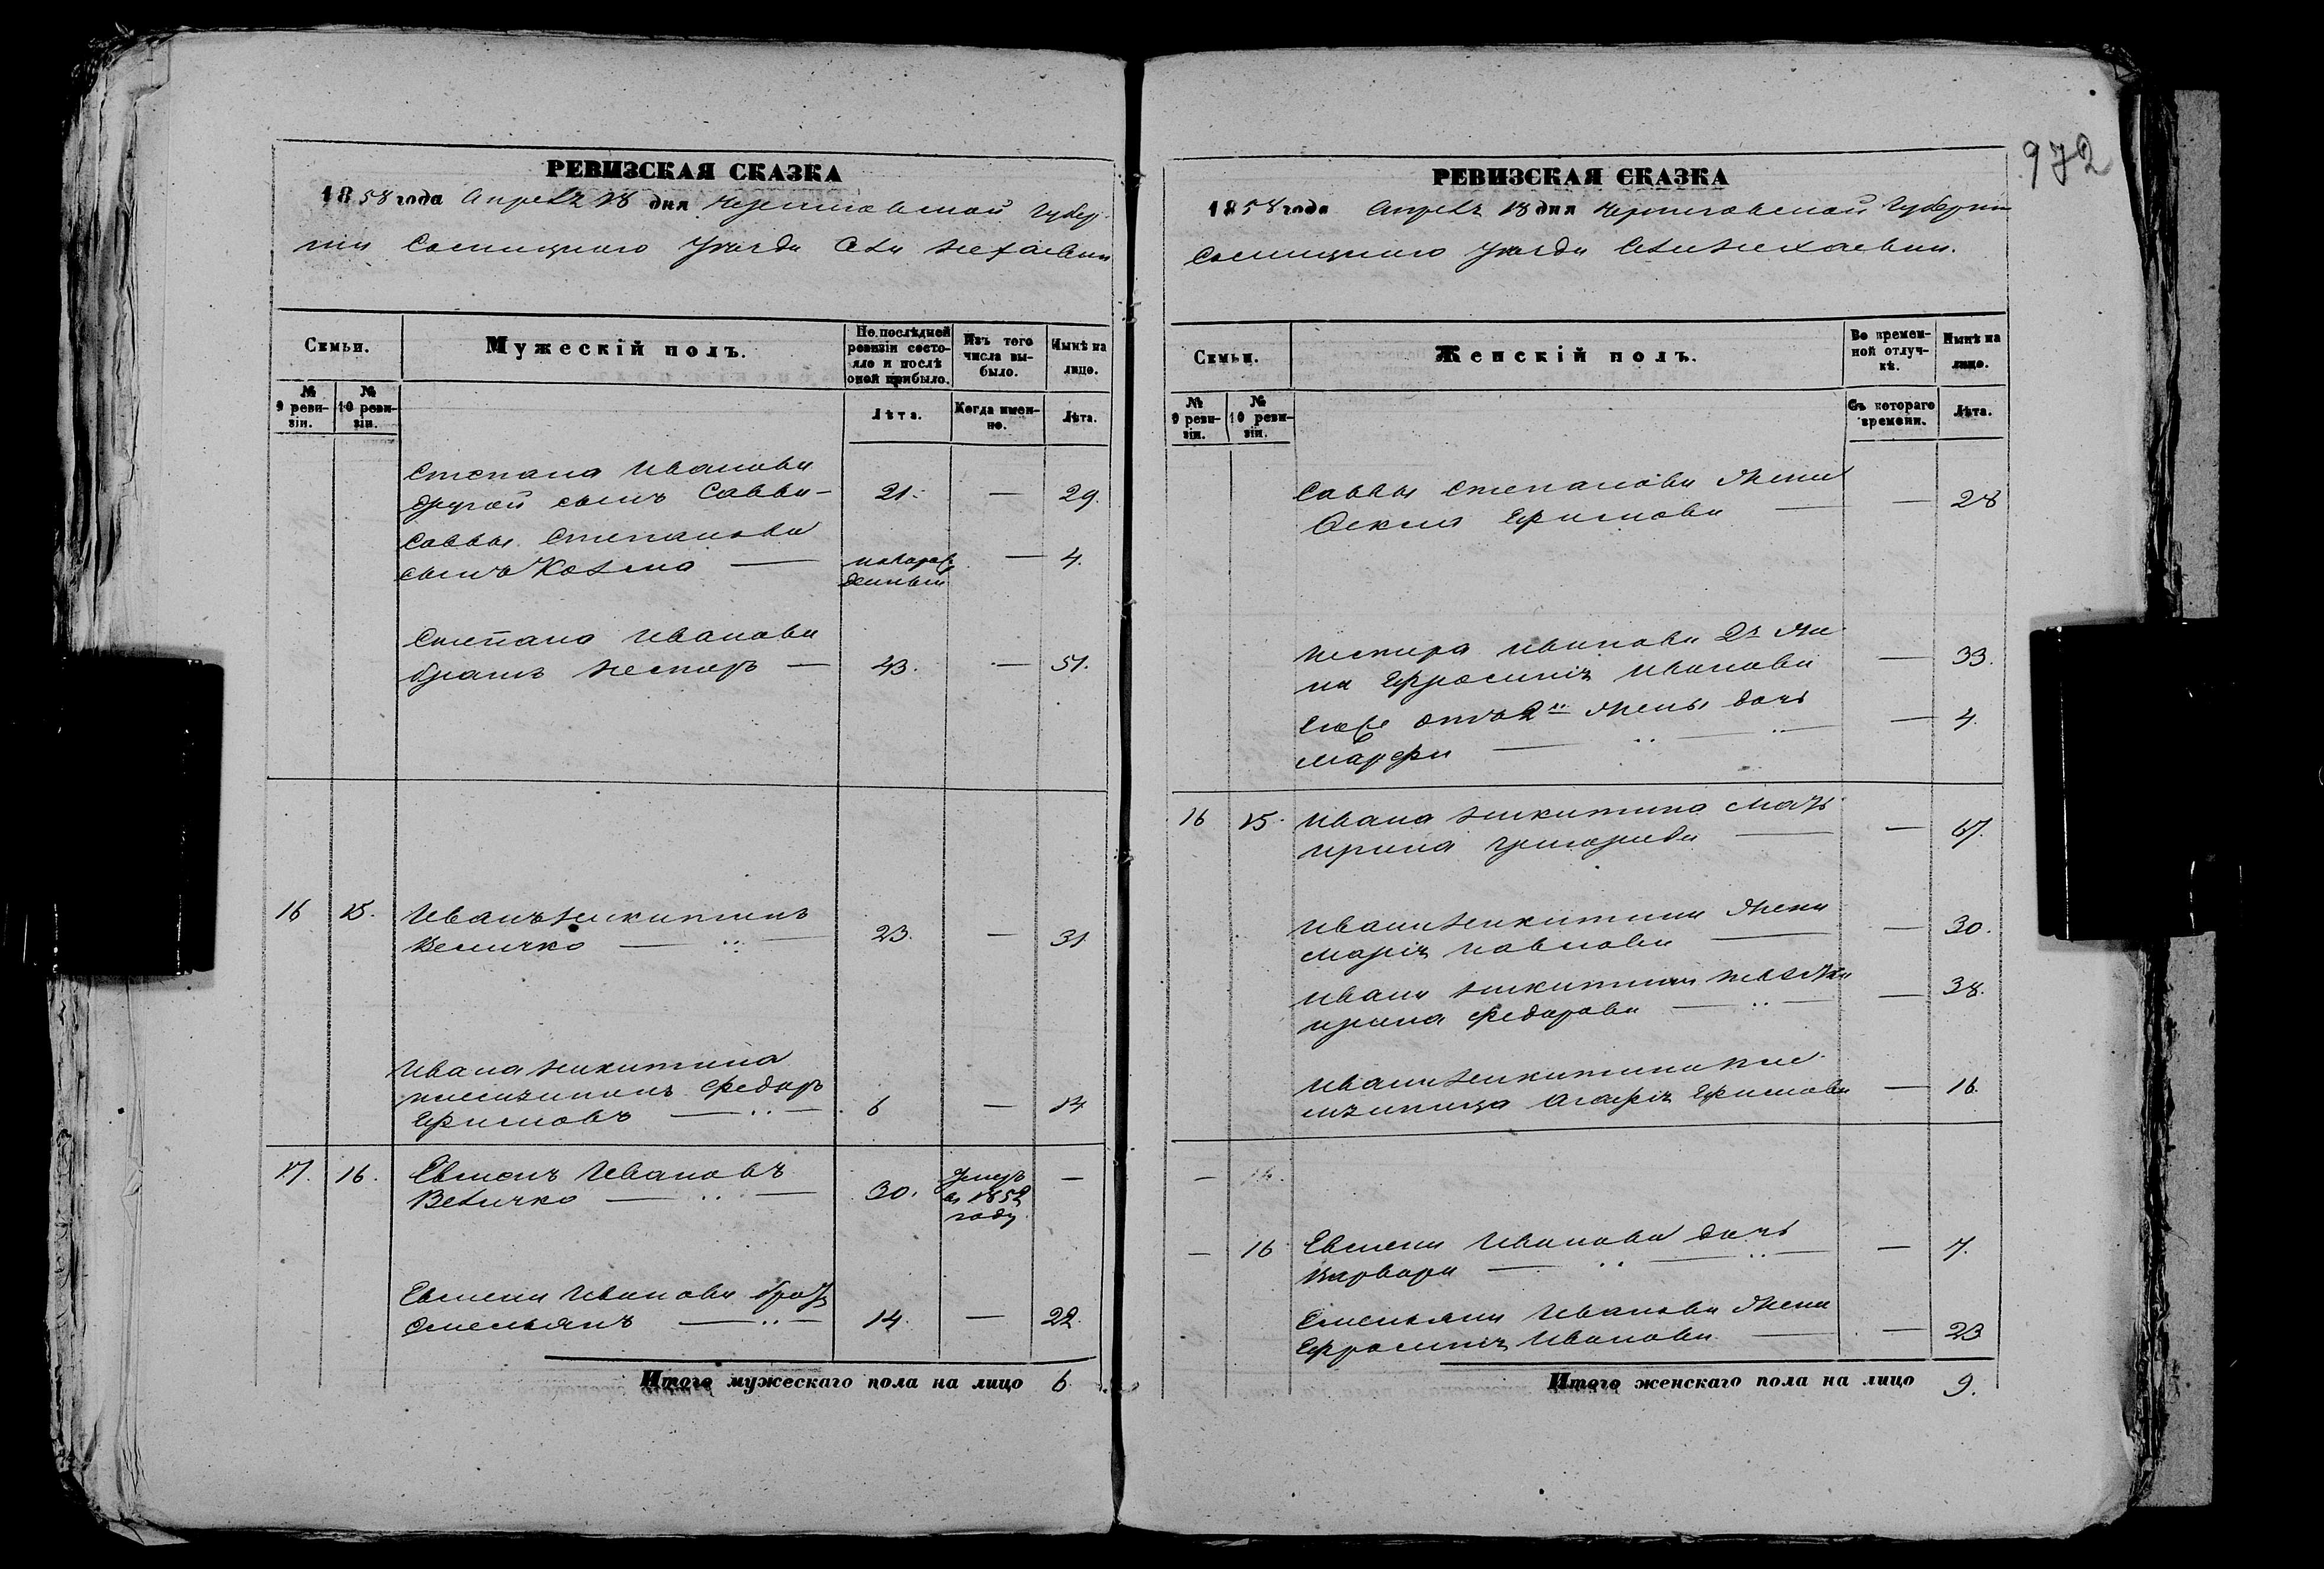 972
РЕВИЗСКАЯ СКАЗКА
1858 года Апреля 18 дня Черниговской Губер-
нии Сосницкого Уезда Села Нехаевки
Семьи.
Мужескій полъ.
По послѣдней ревизіи состояло и послѣ оной прибыло.
Изъ того числа выбыло.
Нынѣ на лицо.
№ 9 ревизіи.
№ 10 ревизіи.
Лѣта.
Когда именно.
Лѣта.
Степана Иванова
другой сынъ Савва - 21. — 29.
Саввы Степанова
сынъ Козма — новорож
денный — 4.
Степана Иванова
братъ Несторъ — 43. — 51.
16 15. Иванъ Никитинъ
Величко — 23. — 31
Ивана Никитина
племянникъ Федоръ
Ефимовъ — 6 — 14
17. 16. Евменъ Ивановъ
Величко — 30. умеръ
въ 1852
году —
Евмена Иванова братъ
Омельянъ — 14. — 22.
Итого мужескаго пола на лицо 6
РЕВИЗСКАЯ СКАЗКА
1858 года Апреля 18 дня Черниговской Губернии
Сосницкого Уезда Села Нехаевки.
Семьи.
Женскій полъ.
Во временной отлучкѣ.
Нынѣ на лицо.
№ 9 ревизіи.
№ 10 ревизіи.
Съ котораго времени.
Лѣта.
Саввы Степанова жена
Ефимова — — 28
Нестера Иванова 2я же
на Ефросинія Иванова — 33.
Его же отъ 2й жены дочь
Марфа — — 4.
16 15. Ивана Никитина мать
Ирина Григорьева — — 67.
Ивана Никитина жена
Марія Павлова — — 30.
Ивана Никитина невѣстка
Ирина Федорова — — 38.
Ивана Никитина пле
мянница Агафія Ефимова — 16.
— 16 Евмена Иванова дочь
Варвара — — 7.
Емельяна Иванова жена
Ефросинія Иванова — — 23
Итого женскаго пола на лицо 9.